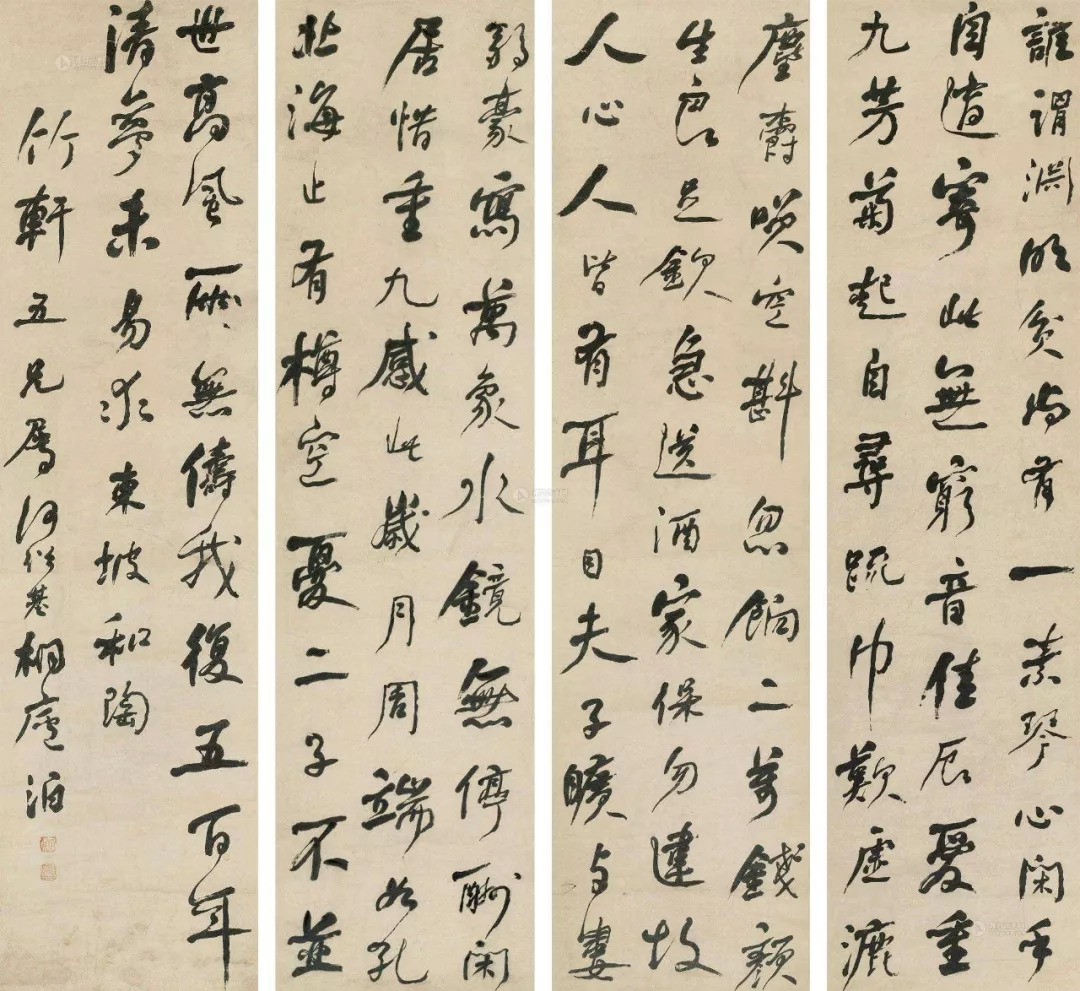 誰謂淵明貧尚有一素琴心閑手
自適寄此無窮音佳辰愛重
九芳菊起自尋疏巾歎虛漉
塵爵咲空斟忽餉二萬錢顏
生良足欽急送酒家保勿違故
人心人皆有耳目夫子曠与婁
弱豪寫萬象水鏡無停酬閑
居惜重九感此歲月周端如孔
北海止有樽空憂二子不並
世高風兩無儔我復五百年
清夢未易求東坡和陶
竹軒五兄屬何紹基桐廬泊